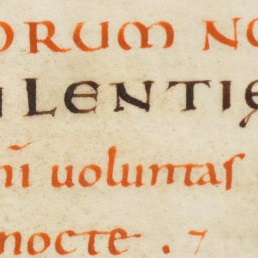 ORUM NO
ILENTIĘ
ni̅ uoluntas
nocte . 7